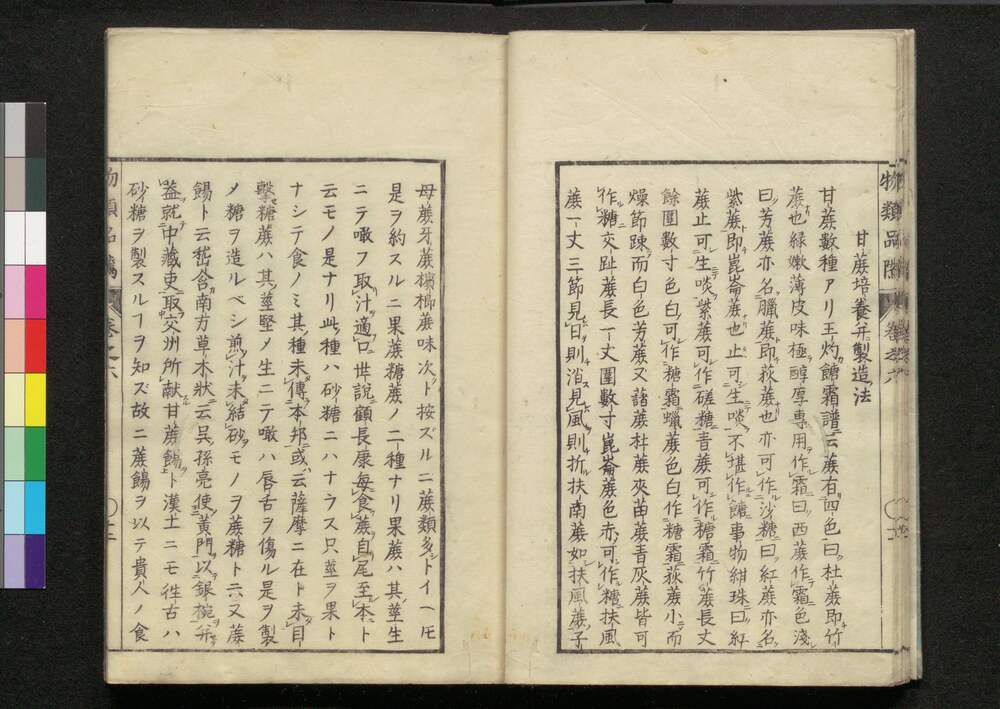 物類品隲 巻之六
甘蔗培養并製造法
甘蔗數種アリ王灼糖霜譜ニ云蔗有四色曰杜蔗即竹
蔗也緑嫩薄皮味極醇厚専用作霜曰西蔗作霜色淺
曰芳蔗亦名臘蔗即荻蔗也亦可作沙糖曰紅蔗亦名
紫蔗即崑崙蔗也止可生啖不堪作糖事物紺珠曰紅
蔗止可生啖紫蔗可作磋糖青蔗可作糖霜竹蔗長丈
餘圍數寸色白可作糖霜蠟蔗色白作糖霜荻蔗小而
燥節踈而白色芳蔗又藷蔗杜蔗夾苗蔗青灰蔗皆可
作糖交趾蔗長一丈圍數寸崑崙蔗色赤可作糖扶風
蔗一丈三節見日則消見風則折扶南蔗如扶風蔗子
母蔗牙蔗榔蔗味次ト按ズルニ蔗類多シトイヘ𪜈
是ヲ約スルニ果蔗糖蔗ノ二種ナリ果蔗ハ其莖生
ニテ噉フ取汁適口世說顧長康毎食蔗自尾至本ト
云モノ是ナリ此種ハ砂糖ニハナラス只莖ヲ果ト
ナシテ食ノミ其種未傳本邦或云薩摩ニ在ト未目
擊糖蔗ハ其莖堅メ生ニテ噉ハ唇舌ヲ傷ル是ヲ製
メ糖ヲ造ルベシ煎汁未結砂モノヲ蔗糖ト云又蔗
餳ト云嵆含南方草木狀云呉孫亮使黄門以銀椀并
蓋就中藏吏取交洲所献甘蔗餳ト漢土ニモ徃古ハ
砂糖ヲ製スルヿヲ知ズ故ニ蔗餳ヲ以テ貴人ノ食
物類品隲 巻之六